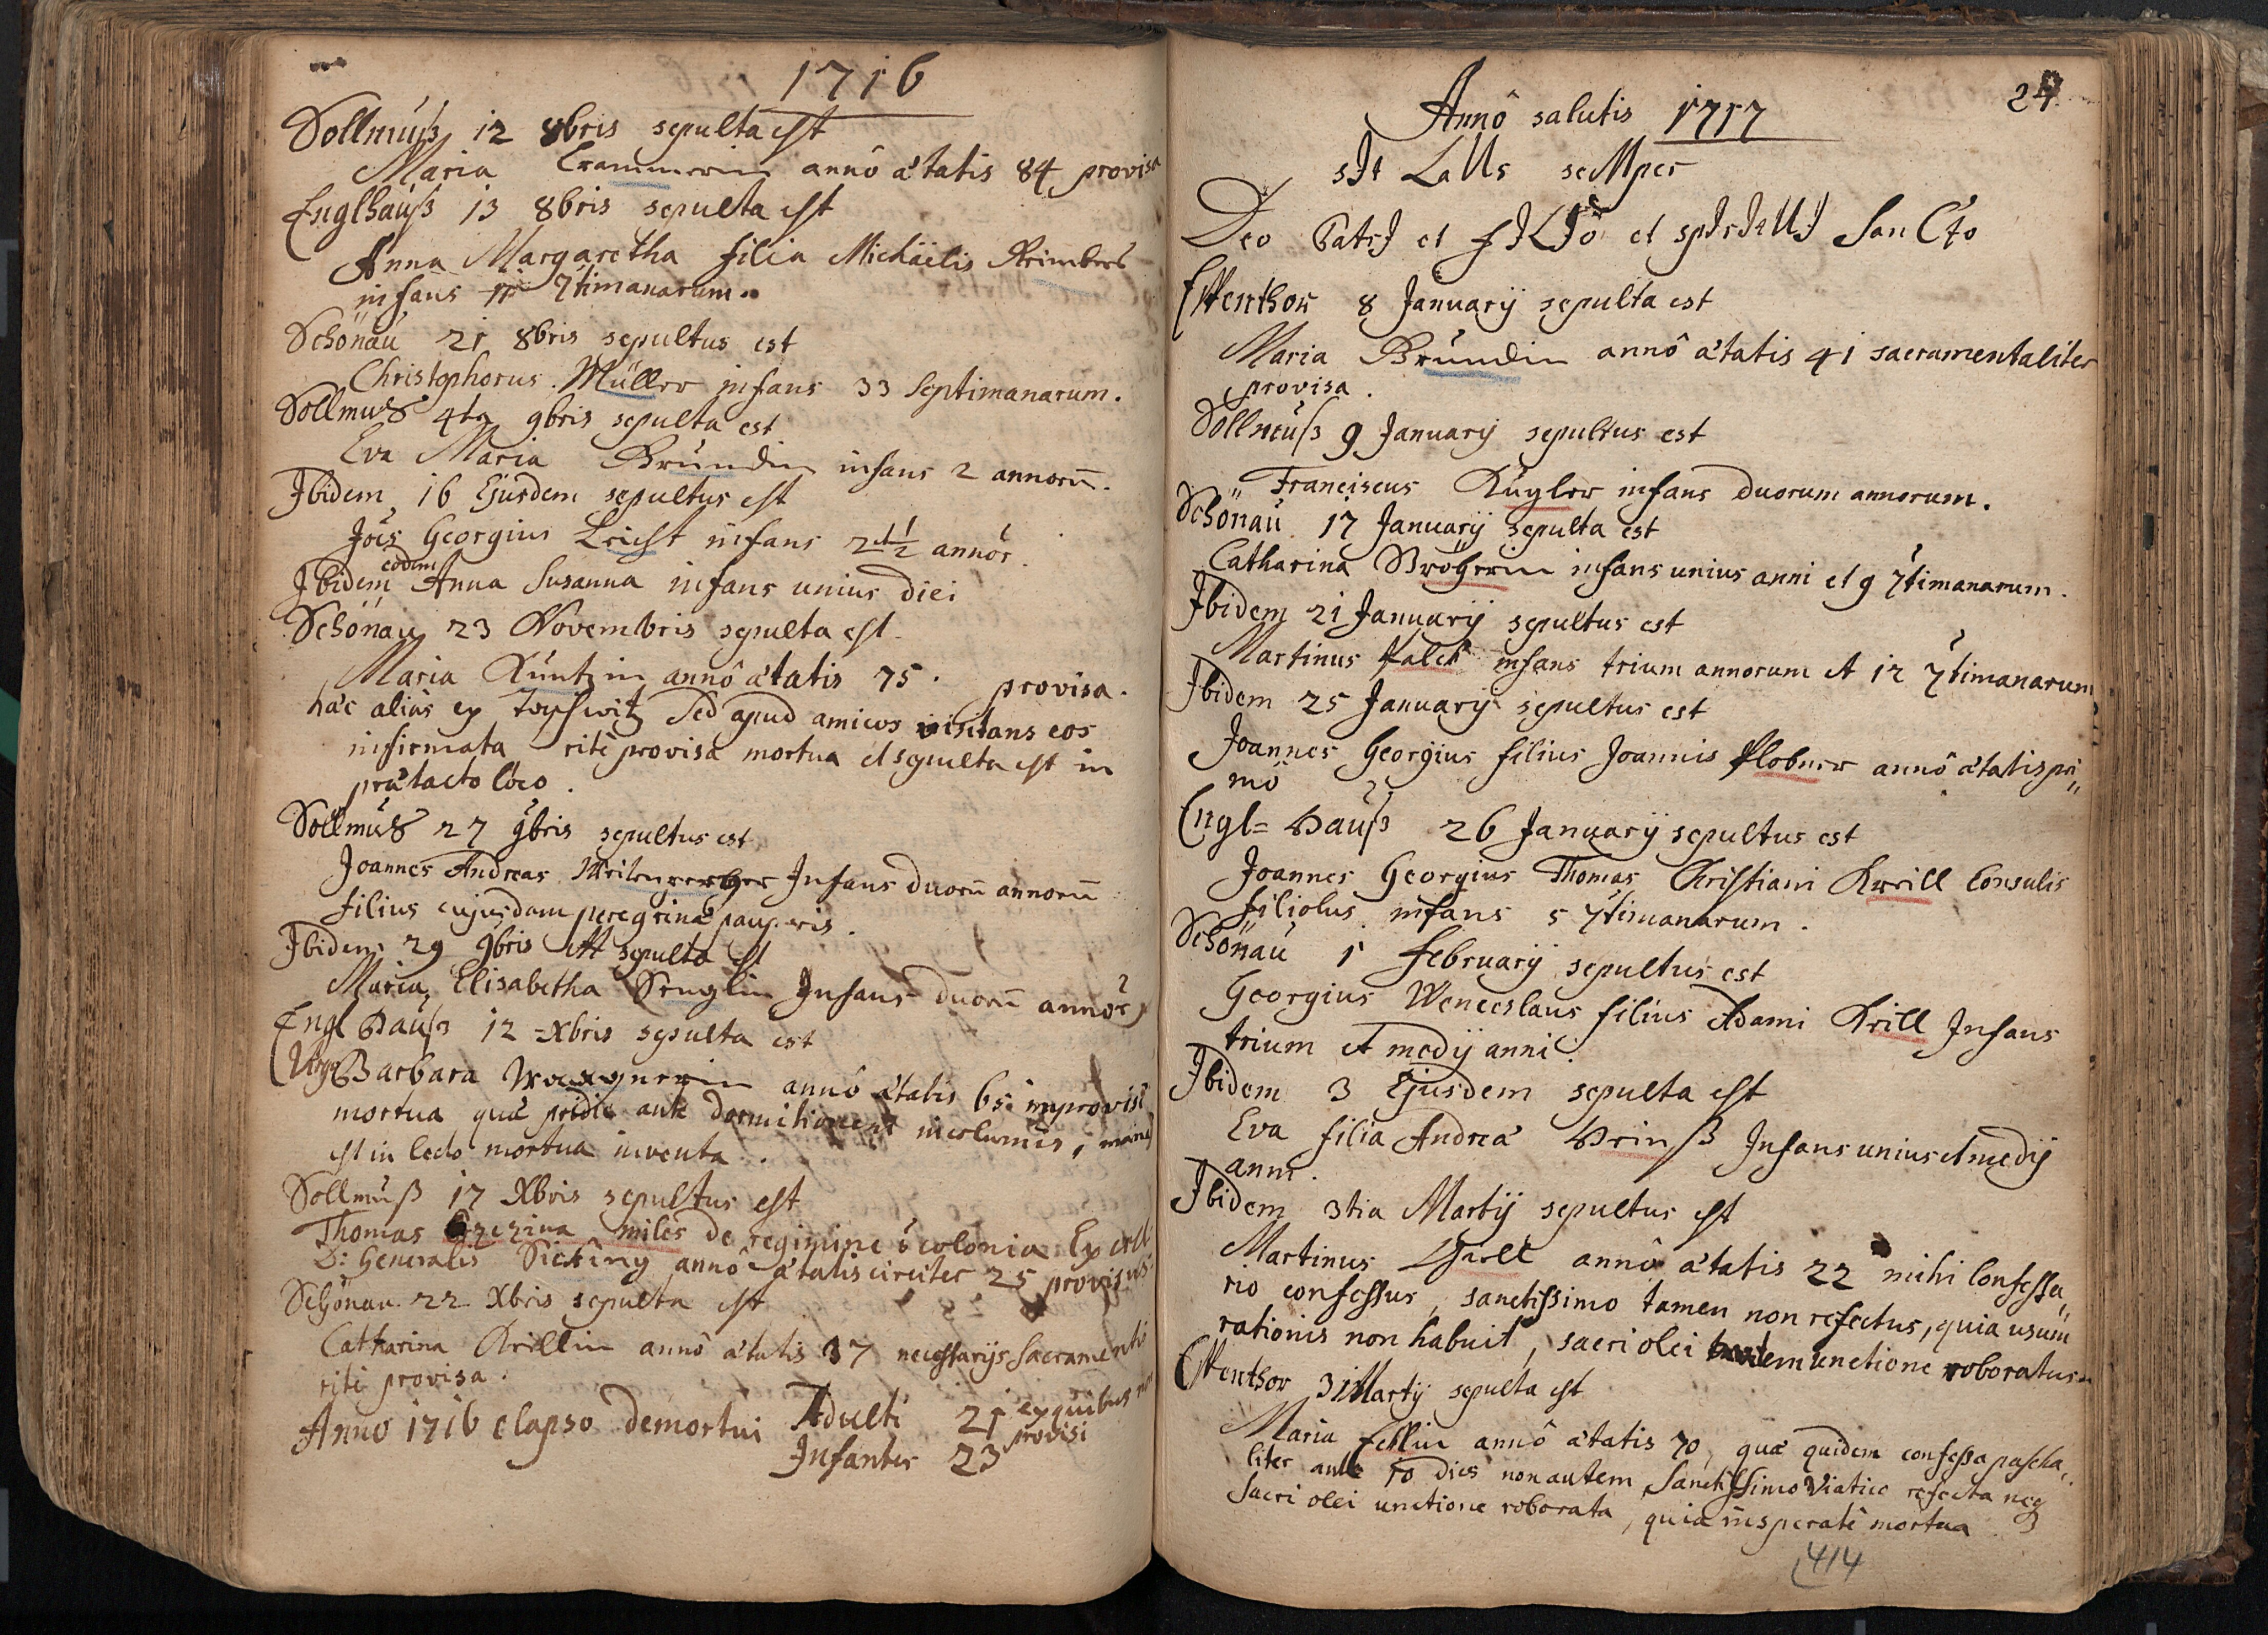 1716
Sollmuß 12 8bris sepulta est
Maria Crammerin annô ætatis 84 provisa
Englhauß 13 8bris sepulta est
Anna Margaretha filia Michäelis
infans 7timanarum.
Schönau 21 8bris sepultus est
Christophorus Müller infans 33 septimanarum.
Sollmus 4ta 9bris sepulta est
Eva Maria Bründin infans 2 annorū.
Ibidem 16 Ejusdem sepultus est
Jões Georgius infans 2 et ½ annor.
Ibidem eodem Anna Susanna infans unius diei
Schönau 23 Novembris sepulta est
Maria Küntzin annô ætatis 75. provisa.
hæc alias ex sed apud amicos visitans eos
infirmata ritè provisa mortua et sepulta est in
prætacto loco.
Sollmus 27 9bris sepultus est
Joannes Andreas Infans duorū annorū
filius cujusdam peregrinæ
Ibidem 29 9bris sepulta est
Maria Elisabetha Infans duorū annor.
Engl Hauß 12 Xbris sepulta est
Barbara Wagnerin annô ætatis 65
mortua quæ pridie ante dormitionem incolumis, mane
est in lecto mortua inventa.
Sollmuß 17 Xbris sepultus est
Thomas miles de regimine
D: Generalis Sicking annô ætatis circiter 25 provisus.
Schönau 22 Xbris sepulta est
Catharina Krillin annô ætatis 37 necessarijs Sacramentis
ritè provisa.
Anno 1716 elapso demortui Adulti 21 ex quibus
provisi
Infantes 23
24
Annô salutis 1717
sIt LaUs seMper
Deo PatrI et fILIo et spIrItUI SanCto
8 Januarij sepulta est
Maria Bründin annô ætatis 41 sacramentaliter
provisa.
Sollmuß 9 Januarij sepultus est
Franciscus Kügler infans duorum annorum.
Schönau 17 Januarij sepulta est
Catharina infans unius anni et 9 7timanarum.
Ibidem 21 Januarij sepultus est
Martinus infans trium annorum et 12 7timanarum
Ibidem 25 Januarij sepultus est
Joannes Georgius filius Joannis Plobner annô ætatis pri„
mô
Engl= Hauß 26 Januarij sepultus est
Joannes Georgius Thomas Christiani Kreill Consulis
filiolus infans 5 7timanarum.
Schönau 1 February sepultus est
Georgius Wenceslaus filius Adami Krill Infans
trium et medij anni.
Ibidem 3 Ejusdem sepulta est
Eva filia Andreæ Infans unius et medij
anni.
Ibidem 3tia Martij sepultus est
Martinus annô ætatis 22 mihi Confessa„
rio confessus, sanctissimo tamen non refectus, quia usum
rationis non habuit, sacri olei unctione roboratus.
31 Martij sepulta est
Maria annô ætatis 70, quæ quidem confessa pascha„
liter ante 10 dies non autem Sanctissimo Viatico refecta neq
sacri olei unctione roborata, quia insperatè mortua
414